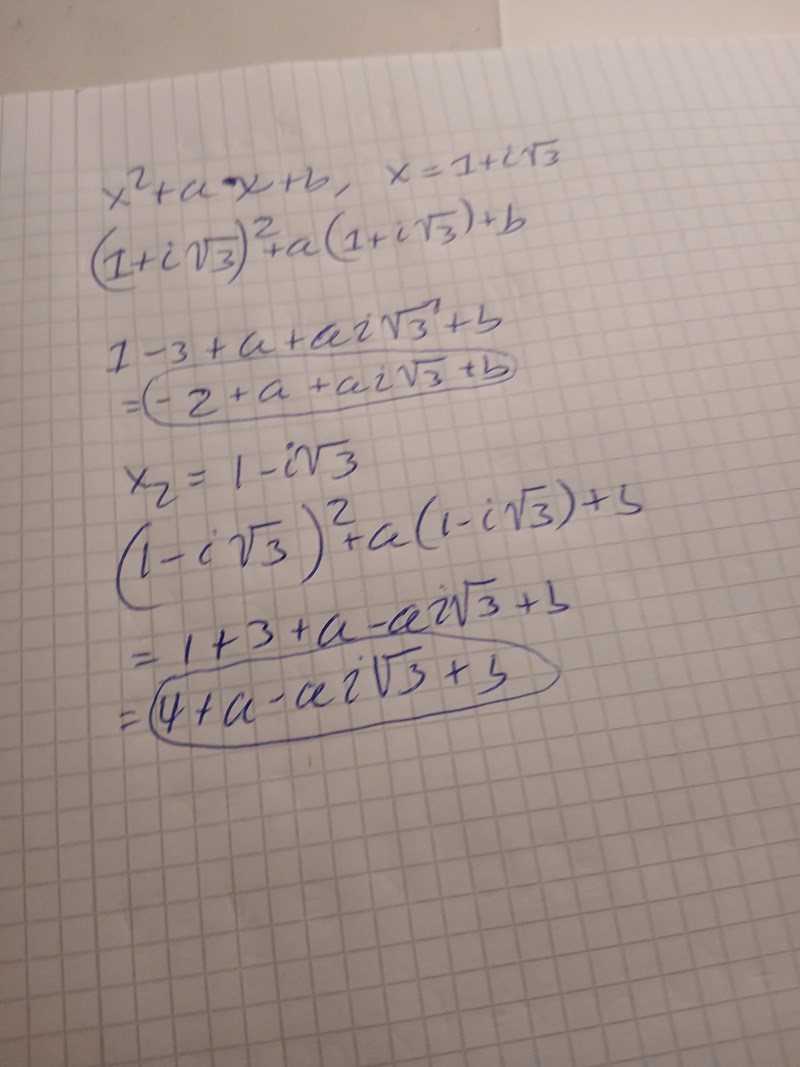 x²+a·x+b, x=1+i√3
(1+i√3)²+a(1+i√3)+b
1-3+a+ai√3+b
=-2+a+ai√3+b
x₂=1-i√3
(1-i√3)²+a(1-i√3)+b
=1+3+a-ai√3+b
=4+a-ai√3+b